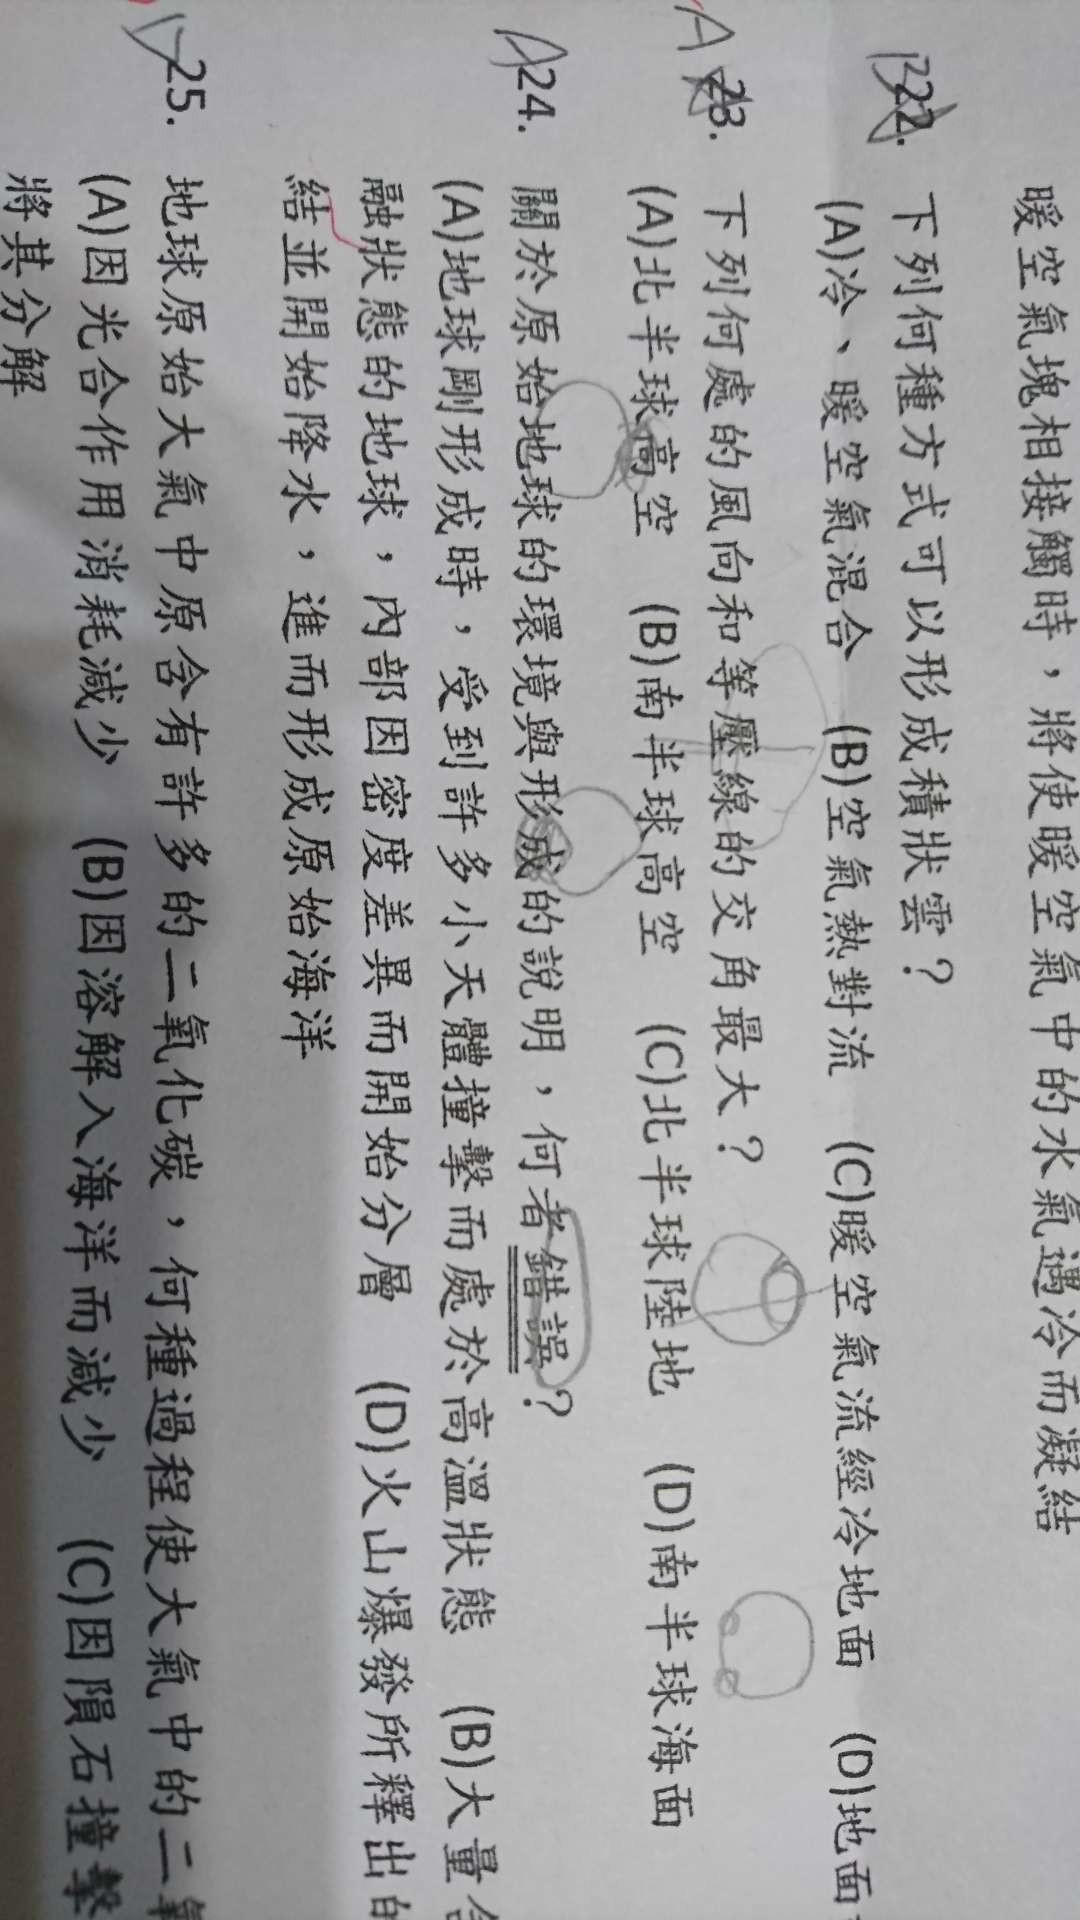 暖空氣塊相接觸時，將使暖空氣中的水氣遇冷而凝結
22. 下列何種方式可以形成積狀雲？
(A)冷、暖空氣混合 (B)空氣熱對流 (C)暖空氣流經冷地面 (D)地面
A 23. 下列何處的風向和等壓線的交角最大？
(A)北半球高空 (B)南半球高空 (C)北半球陸地 (D)南半球海面
24. 關於原始地球的環境與形成的說明，何者錯誤？
(A)地球剛形成時，受到許多小天體撞擊而處於高溫狀態 (B)大量
融狀態的地球，內部因密度差異而開始分層 (D)火山爆發所釋出的
結並開始降水，進而形成原始海洋
25. 地球原始大氣中原含有許多的二氧化碳，何種過程使大氣中的二氧
(A)因光合作用消耗減少 (B)因溶解入海洋而減少 (C)因隕石撞擊
將其分解